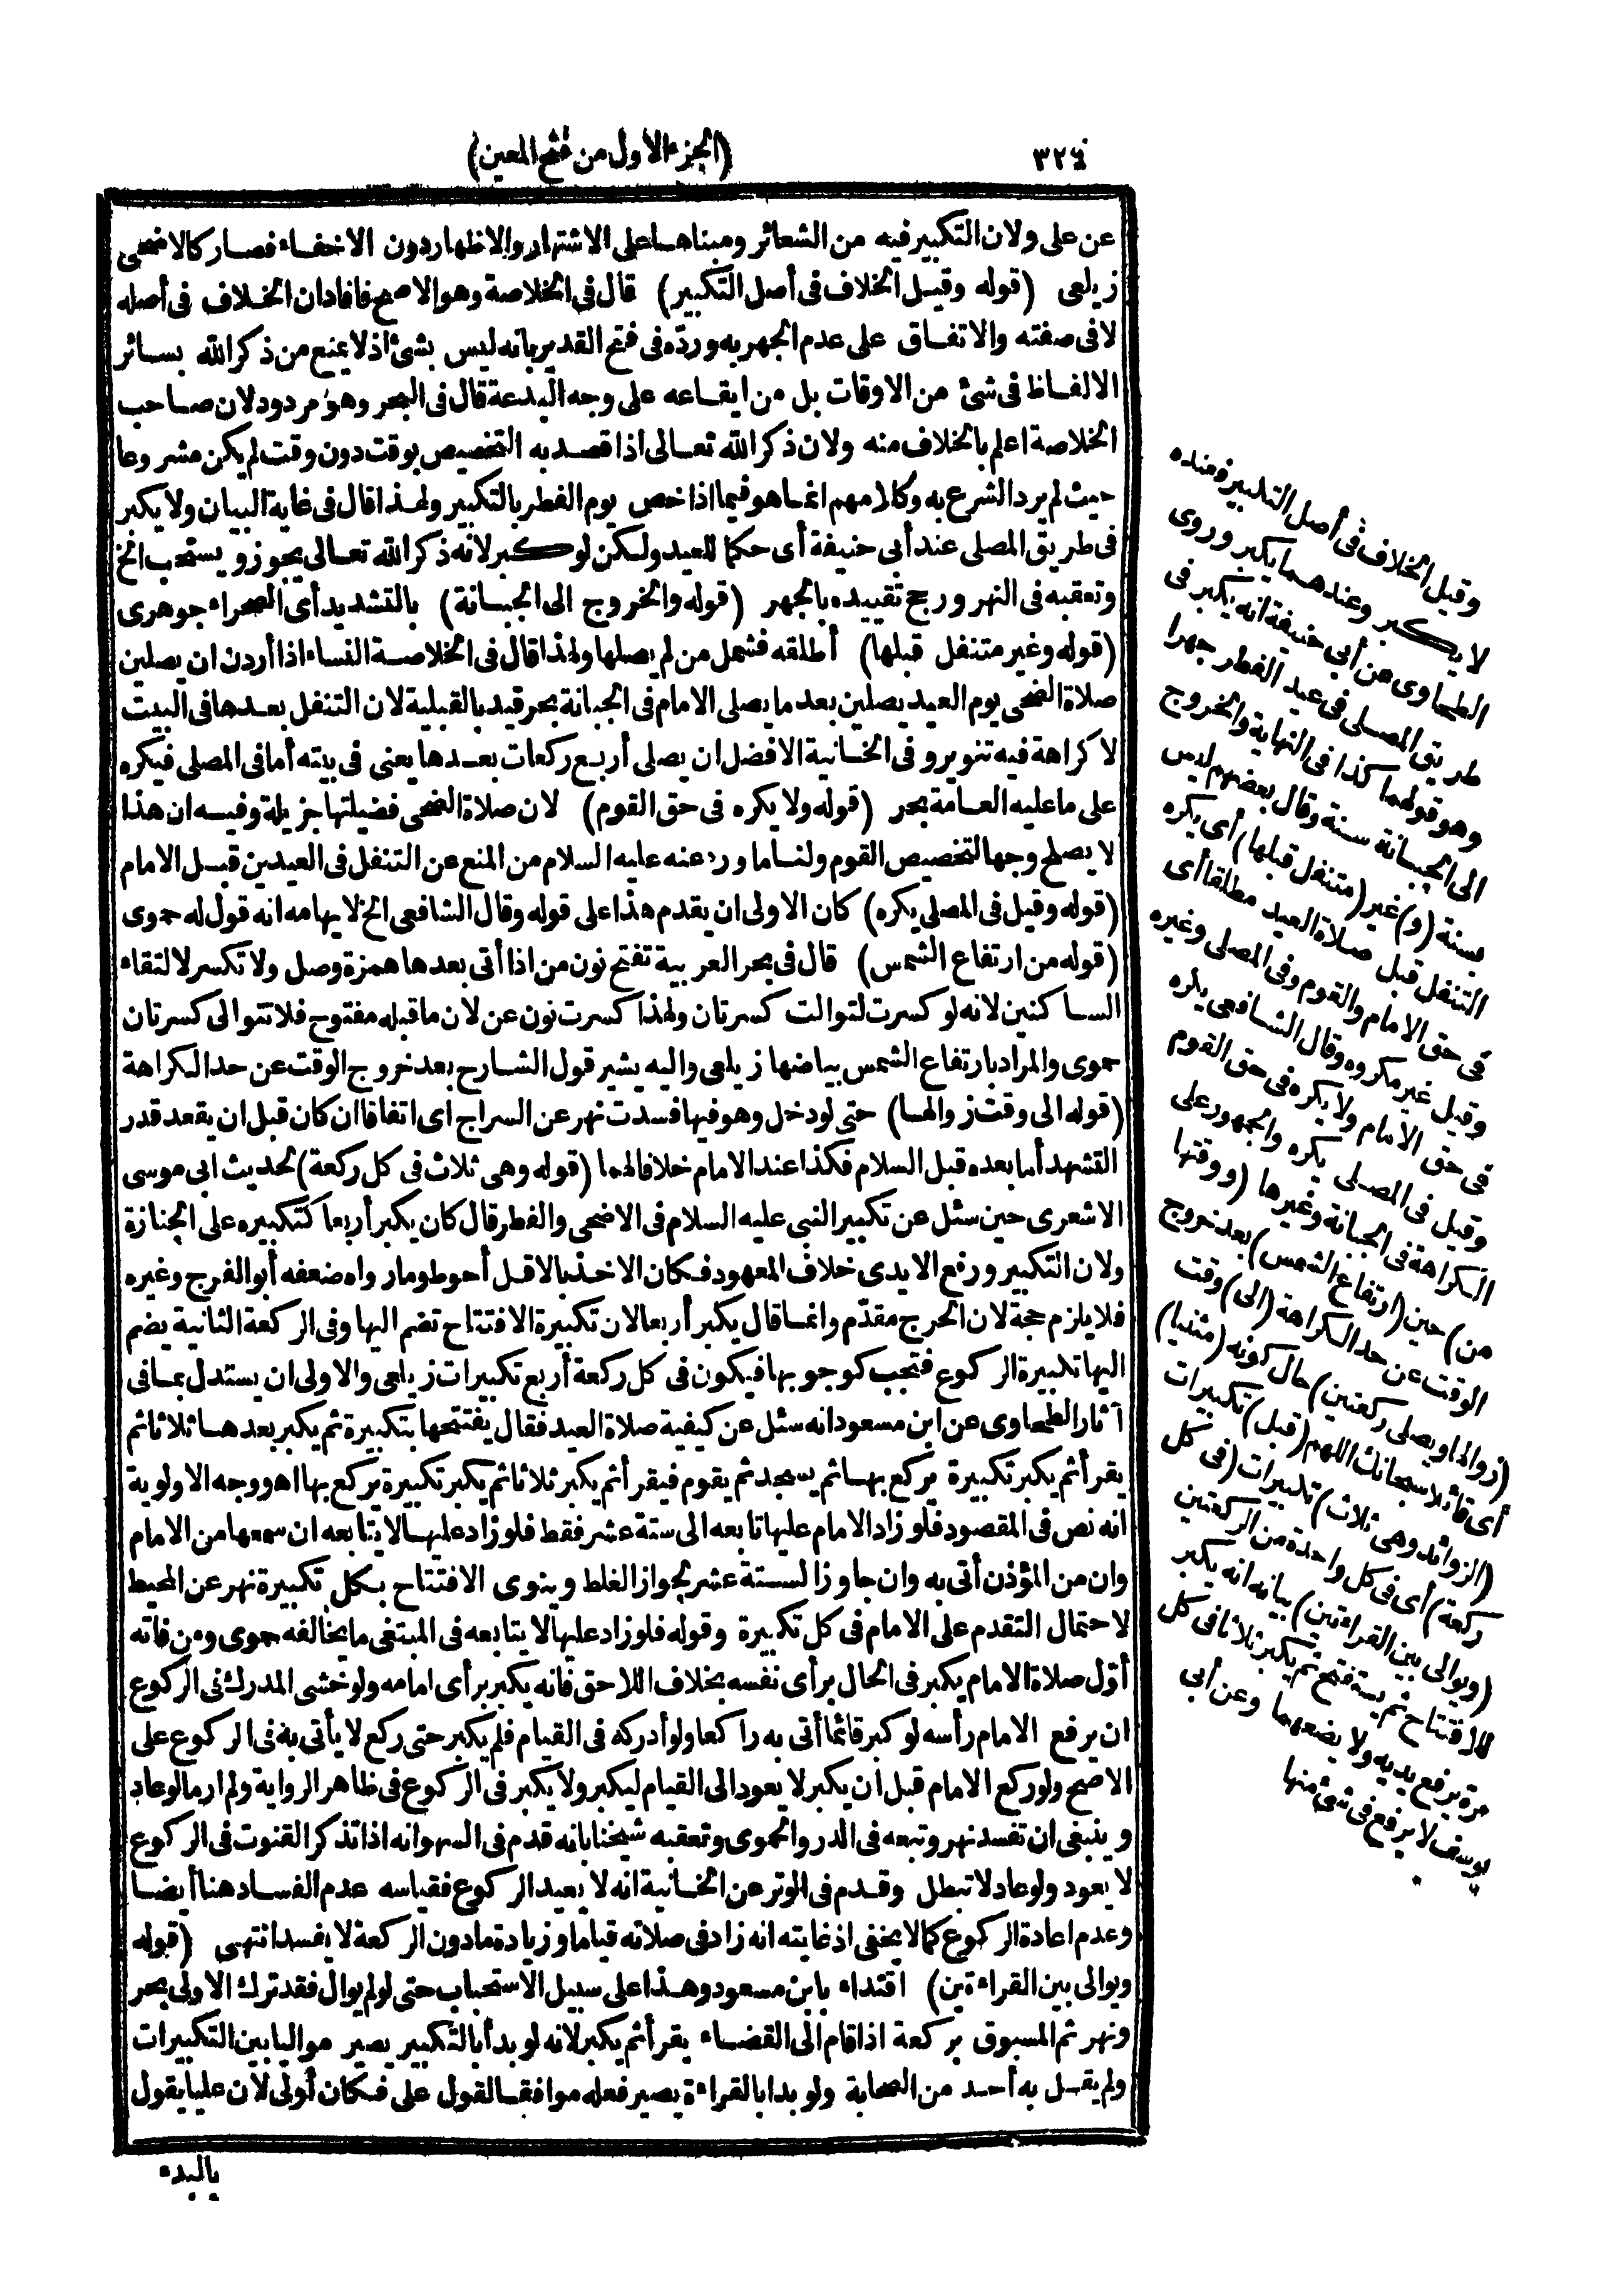 ٣٢٤
(الجزء الاول من فتح المعين)
عن على ولان التكبير فيه من الشعائر ومبناها على الاشتهار والاظهار دون الاخفاء فصار كالاضحى
زيلعى (قوله وقيل الخلاف فى أصل التكبير) قال فى الخلاصة وهو الاصح فافادان الخلاف فى أصله
لا فى صفته والاتفاق على عدم الجهر به ورده فى فتح القدير بانه ليس بشئ اذ لا يمنع من ذكر الله بسائر
الالفاظ فى شئ من الاوقات بل من ايقاعه على وجه البدعة قال فى البحر وهو مردود لان صاحب
الخلاصة اعلم بالخلاف منه ولان ذكر الله تعالى اذا قصد به التخصيص بوقت دون وقت لم يكن مشروعا
حيث لم يرد الشرع به وكلامهم انما هو فيما اذا خص يوم الفطر بالتكبير ولهذا قال فى غاية البيان ولا يكبر
فى طريق المصلى عند أبى حنيفة أى حكما للعيد ولكن لو كبر لانه ذكر الله تعالى يجوز ويستحب الخ
وتعقبه فى النهر ورجح تقييده بالجهر (قوله والخروج الى الجبانة) بالتشديد أى الصحراء جوهرى
(قوله وغير متنفل قبلها) أطلقه فشمل من لم يصلها ولهذا قال فى الخلاصة النساء اذا أردن ان يصلين
صلاة الضحى يوم العيد يصلين بعد ما يصلى الامام فى الجبانة بحر قيد بالقبلية لان التنفل بعدها فى البيت
لا كراهة فيه تنوير و فى الخانية الافضل ان يصلى أربع ركعات بعدها يعنى فى بيته أما فى المصلى فيكره
على ما عليه العامة بحر (قوله ولا يكره فى حق القوم) لان صلاة الضحى فضيلتها جزيلة وفيه ان هذا
لا يصلح وجها لتخصيص القوم ولنا ما ورد عنه عليه السلام من المنع عن التنفل فى العيدين قبل الامام
(قوله وقيل فى المصلى يكره) كان الاولى ان يقدم هذا على قوله وقال الشافعى الخ لايهامه انه قول له حموى
(قوله من ارتفاع الشمس) قال فى بحر العربية تفتح نون من اذا أتى بعدها همزة وصل ولا تكسر لالتقاء
الساكنين لانه لو كسرت لتوالت كسرتان ولهذا كسرت نون عن لان ما قبله مفتوح فلا تتوالى كسرتان
حموى والمراد بارتفاع الشمس بياضها زيلعى واليه يشير قول الشارح بعد خروج الوقت عن حد الكراهة
(قوله الى وقت زوالها) حتى لو دخل وهو فيها فسدت نهر عن السراج اى اتفاقا ان كان قبل ان يقعد قدر
التشهد أما بعده قبل السلام فكذا عند الامام خلافا لهما (قوله وهى ثلاث فى كل ركعة) لحديث ابى موسى
الاشعرى حين سئل عن تكبير النبى عليه السلام فى الاضحى والفطر قال كان يكبر أربعا كتكبيره على الجنازة
ولان التكبير ورفع الايدى خلاف المعهود فكان الاخذ بالاقل أحوط وما رواه ضعفه أبو الفرج وغيره
فلا يلزم حجة لان الجرح مقدم وانما قال يكبر أربعا لان تكبيرة الافتتاح تضم اليها وفى الركعة الثانية يضم
اليها تكبيرة الركوع فتجب كوجوبها فيكون فى كل ركعة أربع تكبيرات زيلعى والاولى ان يستدل بما فى
آثار الطحاوى عن ابن مسعود انه سئل عن كيفية صلاة العيد فقال يفتتحها بتكبيرة ثم يكبر بعدها ثلاثا ثم
يقرأ ثم يكبر تكبيرة يركع بها ثم يسجد ثم يقوم فيقرأ ثم يكبر ثلاثا ثم يكبر تكبيرة يركع بها اهـ ووجه الاولوية
انه نص فى المقصود فلو زاد الامام عليها تابعه الى ستة عشر فقط فلو زاد عليها لا يتابعه ان سمعها من الامام
وان من المؤذن أتى به وان جاوز الستة عشر لجواز الغلط وينوى الافتتاح بكل تكبيرة نهر عن المحيط
لاحتمال التقدم على الامام فى كل تكبيرة وقوله فلو زاد عليها لا يتابعه فى المبتغى ما يخالفه حموى ومن فاته
أول صلاة الامام يكبر فى الحال برأى نفسه بخلاف اللاحق فانه يكبر برأى امامه ولو خشى المدرك فى الركوع
ان يرفع الامام رأسه لو كبر قائما أتى به راكعا ولو أدركه فى القيام فلم يكبر حتى ركع لا يأتى به فى الركوع على
الاصح ولو ركع الامام قبل ان يكبر لا يعود الى القيام ليكبر ولا يكبر فى الركوع فى ظاهر الرواية ولم ار ما لو عاد
وينبغى ان تفسد نهر وتبعه فى الدر والحموى وتعقبه شيخنا بانه قدم فى السهو انه اذا تذكر القنوت فى الركوع
لا يعود ولو عاد لا تبطل وقدم فى الوتر عن الخانية انه لا يعيد الركوع فقياسه عدم الفساد هنا أيضا
وعدم اعادة الركوع كما لا يخفى اذ غايته انه زاد فى صلاته قياما وزيادة ما دون الركعة لا يفسد انتهى (قوله
ويوالى بين القراءتين) اقتداء بابن مسعود وهذا على سبيل الاستحباب حتى لو لم يوال فقد ترك الاولى بحر
ونهر ثم المسبوق بركعة اذا قام الى القضاء يقرأ ثم يكبر لانه لو بدأ بالتكبير يصير مواليا بين التكبيرات
ولم يقل به أحد من الصحابة ولو بدا بالقراءة يصير فعله موافقا لقول على فكان أولى لان عليا يقول
بالبدء
وقيل الخلاف فى أصل التكبير فعنده
لا يكبر وعندهما يكبر وروى
الطحاوى عن أبى حنيفة انه يكبر فى
طريق المصلى فى عيد الفطر جهرا
وهو قولهما كذا فى النهاية والخروج
الى الجبانة سنة وقال بعضهم ليس
بسنة (و) غير (متنفل قبلها) أى يكره
التنفل قبل صلاة العيد مطلقا أى
فى حق الامام والقوم وفى المصلى وغيره
وقيل غير مكروه وقال الشافعى يكره
فى حق الامام ولا يكره فى حق القوم
وقيل فى المصلى يكره والجمهور على
الكراهة فى الجبانة وغيرها (ووقتها
من) حين (ارتفاع الشمس) بعد خروج
الوقت عن حد الكراهة (الى) وقت
(زوالها ويصلى ركعتين) حال كونه (مثنيا)
أى قائلا سبحانك اللهم (قبل) تكبيرات
(الزوائد وهى ثلاث) تكبيرات (فى كل
ركعة) أى فى كل واحدة من الركعتين
(ويوالى بين القراءتين) بيانه انه يكبر
للافتتاح ثم يستفتح ثم يكبر ثلاثا فى كل
مرة يرفع يديه ولا يضعهما وعن أبى
يوسف لا يرفع فى شئ منها